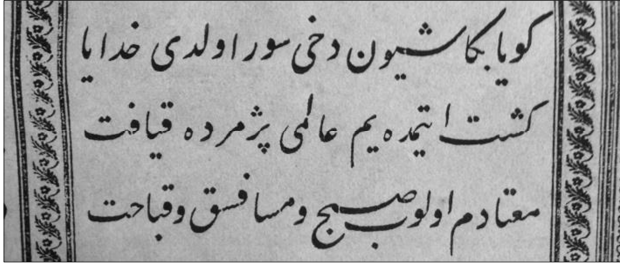 كویا بكا شیون دخی سور اولدی خدایا
كشت ایتمده یم عالمی پژمرده قیافت
معتادم اولوب صبح و مسا فسق و قباحت